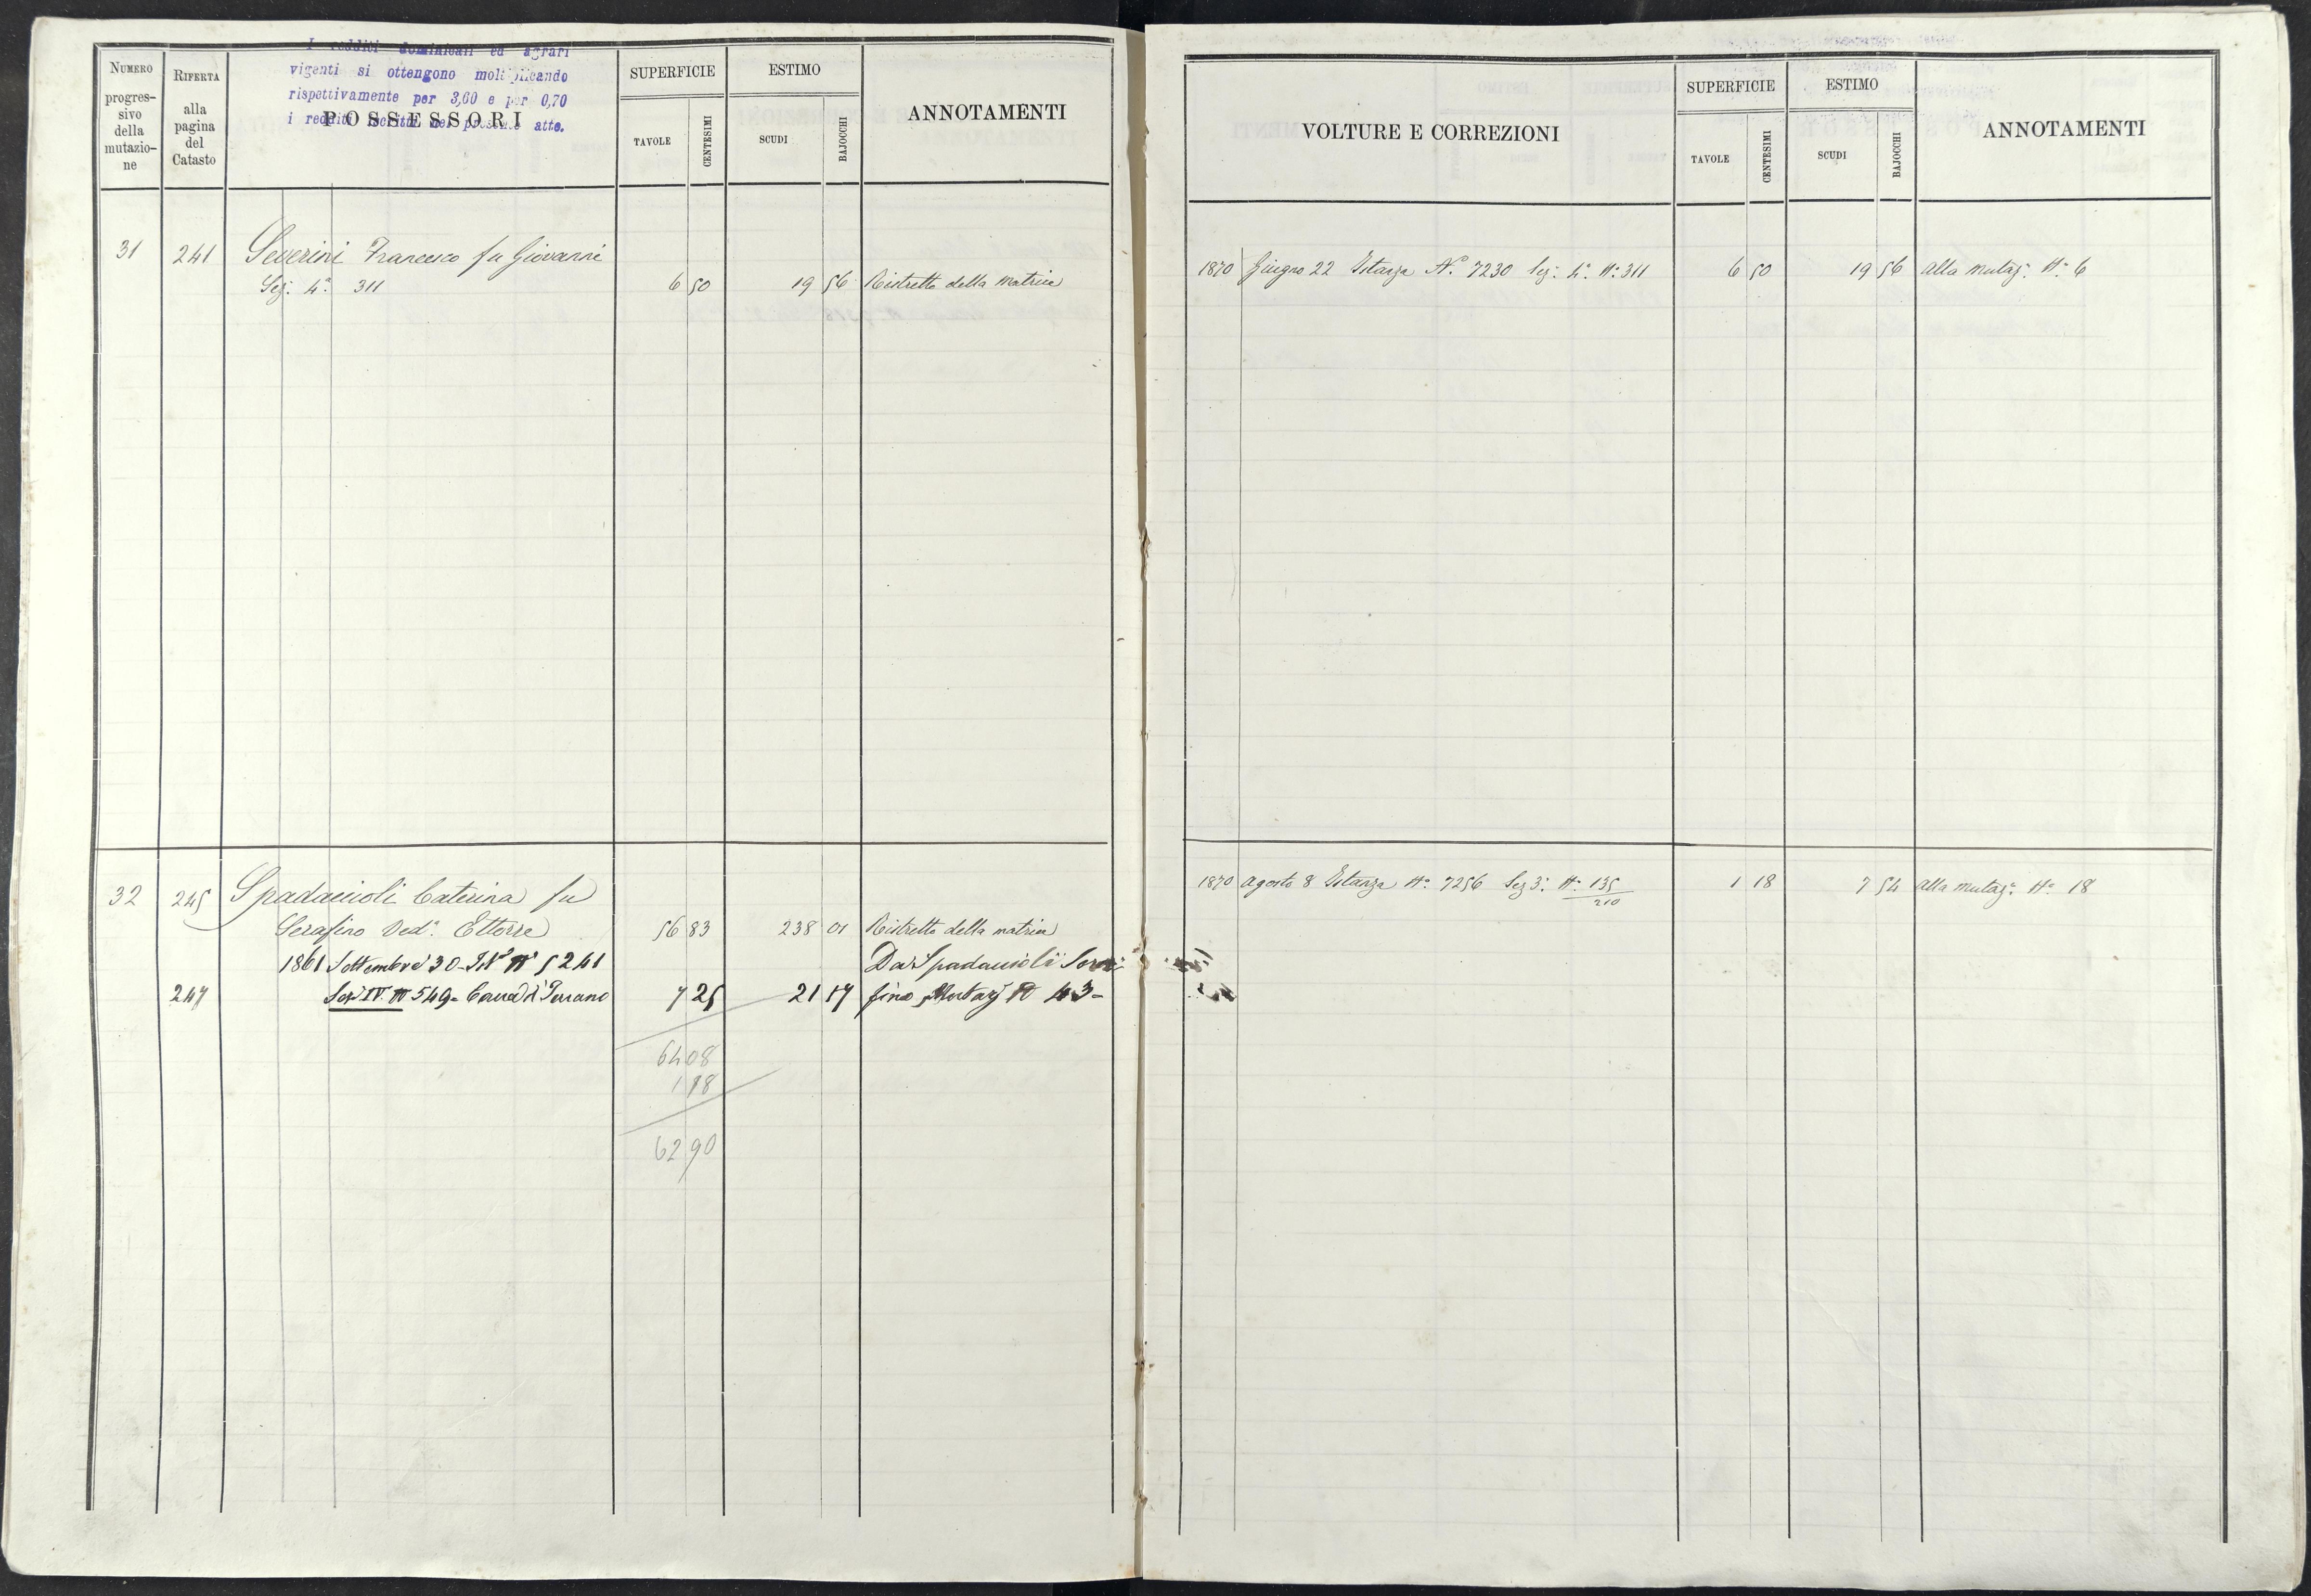 I redditi dominicali ed agrari
vigenti si ottengono moltiplicando
rispettivamente per 3,60 e per 0,70
i redditi iscritti nel presente atto.
NUMERO progressivo della mutazione
RIFERTA alla pagina del Catasto
POSSESSORI
SUPERFICIE
TAVOLE
CENTESIMI
ESTIMO
SCUDI
BAJOCCHI
ANNOTAMENTI
31 241 Severini Francesco fu Giovanni
Sez: 4ª 311 6 50 19 56 Ristretto della Matrice
32 245 Spadaccioli Caterina fu
Serafino Ved: Ettorre 56 83 238 01 Ristretto della matrice
1861 Settembre 30 - Nº 5241 Da Spadaccioli
247 Sez IV. Nº 549 - 7 25 21 17 fino Mutaz Nº 43 -
64 08
1 18
62 90
VOLTURE E CORREZIONI
SUPERFICIE
TAVOLE
CENTESIMI
ESTIMO
SCUDI
BAJOCCHI
ANNOTAMENTI
1870 Giugno 22 Istanza Nº 7230 Sez: 4ª Nº 311 6 50 19 56 alla mutaz: Nº 6
1870 Agosto 8 Istanza Nº 7256 Sez 3ª Nº 135 1 18 7 54 alla mutaz: Nº 18
210